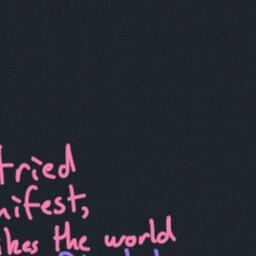 tried
nifest,
ikes the world